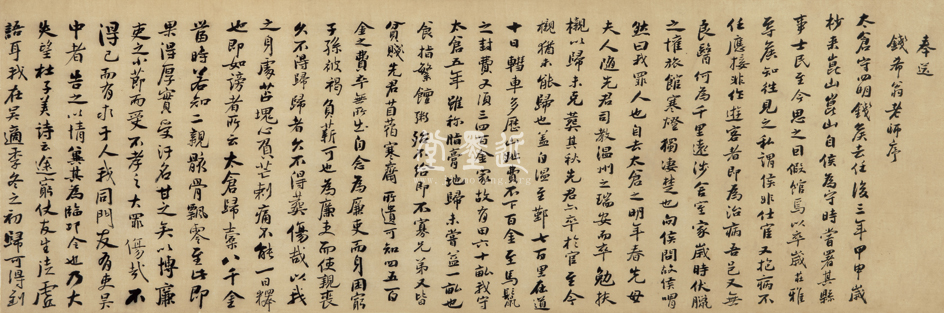 奉送
錢希翁老師序
太倉守四明錢侯去任後三年甲申歲
杪來崑山崑山自侯為守時嘗署其縣
事士民至今思之日假館焉以卒歲莊雅
尊侯知往見之私謂侯非仕宦又抱病不
任應接非作遊客者即為治病吾邑又無
良醫何為千里遠涉舍室家歲時伏臘
之惟旅館寒燈獨淒楚也向侯問故侯喟
然曰我罪人也自去太倉之明年春先母
夫人漁先君司教溫州之瑞安而卒勉扶
櫬以歸未克葬其秋先君亦卒於官至今
櫬猶未能歸也蓋自溫至鄞七百里在道
十日轜車多歷 費不下百金至馬鬣
之封費又須三四百金家故有田六十畝我守
太倉五年雖称脂膏地歸未嘗益一畝也
食指繁饘粥 給即不寒先弟又皆
貧賤先君苜蓿寒齋所遺可知四五百
金之費卒無所出自念為廉吏而身困窮
子孫被褐負薪可也為廉吏而使親喪
久不得歸歸者久不得葬傷哉以我
之身處苫塊心有芒刺痛不能一日釋
也即如謗者所云太倉歸橐八千金
當時若知二親骸骨飄零至此即
果得厚實受汙名甘之矣以博廉
吏之小節而受不孝之大罪傷哉不
得已而有求于人我同門友有吏吳
中者告之以情冀其為臨邛令也乃大
失望杜子美詩云途窮仗友生徒虛
語耳我在吳適季冬之初歸可得到
近墨堂